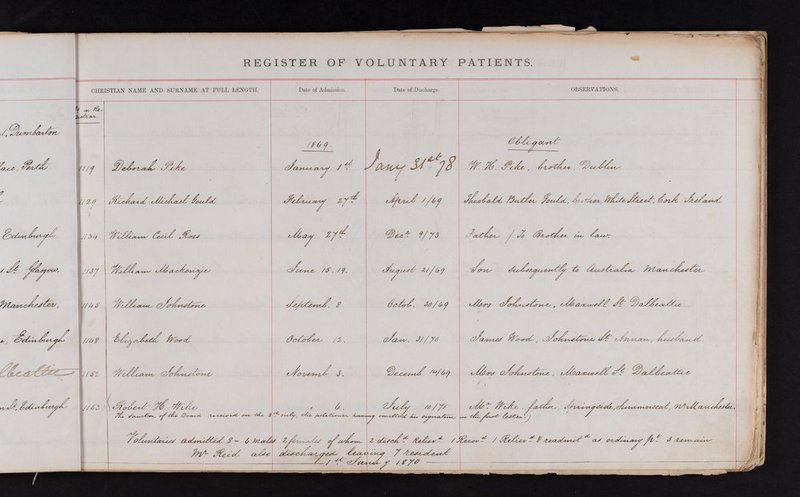 REGISTER OF VOLUNTARY PATIENTS.
CHRISTIAN NAME AND SURNAME AT FULL LENGTH. Date of Admission. Date of Discharge. OBSERVATIONS.
Dumbarton
1869. Obligant
Perth 1119 Deborah Pike January 1st Jany 31st 78 W. H. Pike, brother, Dublin
1124 Richard Michael Gould February 27th April 1/69 Theobald Butler Gould, brother, White Street, Cork Ireland
Edinburgh 1134 William Cecil Ross May 27th Decr 9/73 Father / To Brother in law.
St. Glasgow. 1137 William Mackenzie June 15. 19. August 21/69 Son subsequently to Australia Manchester
Manchester. 1145 William Johnstone Septemb. 8 Octob. 30/69 Moss Johnstone, Maxwell St Dalbeattie
Edinburgh 1148 Elizabeth Wood October 12. Jan. 31/70 James Wood, Johnstone St Annan, husband.
Dalbeattie 1152 William Johnstone Novemb 3. Decemb 10/69 Moss Johnstone, Maxwell St Dalbeattie
St, Edinburgh 1153 Robert H. Wike " 6. July 10/71 Mr Wike, father, Springside, Summerseat, nr Manchester.
The sanction of the Board received on the 8th only, the petitioner having omitted his signature in the first letter.)
Voluntaries admitted 8 - 6 males 2 females of whom 2 dischd Relievd 1 Recovd 1 Relievd & readmitd as ordinary pt 3 remain
Mr Reid also discharged leaving 7 resident
1st Jany 1870